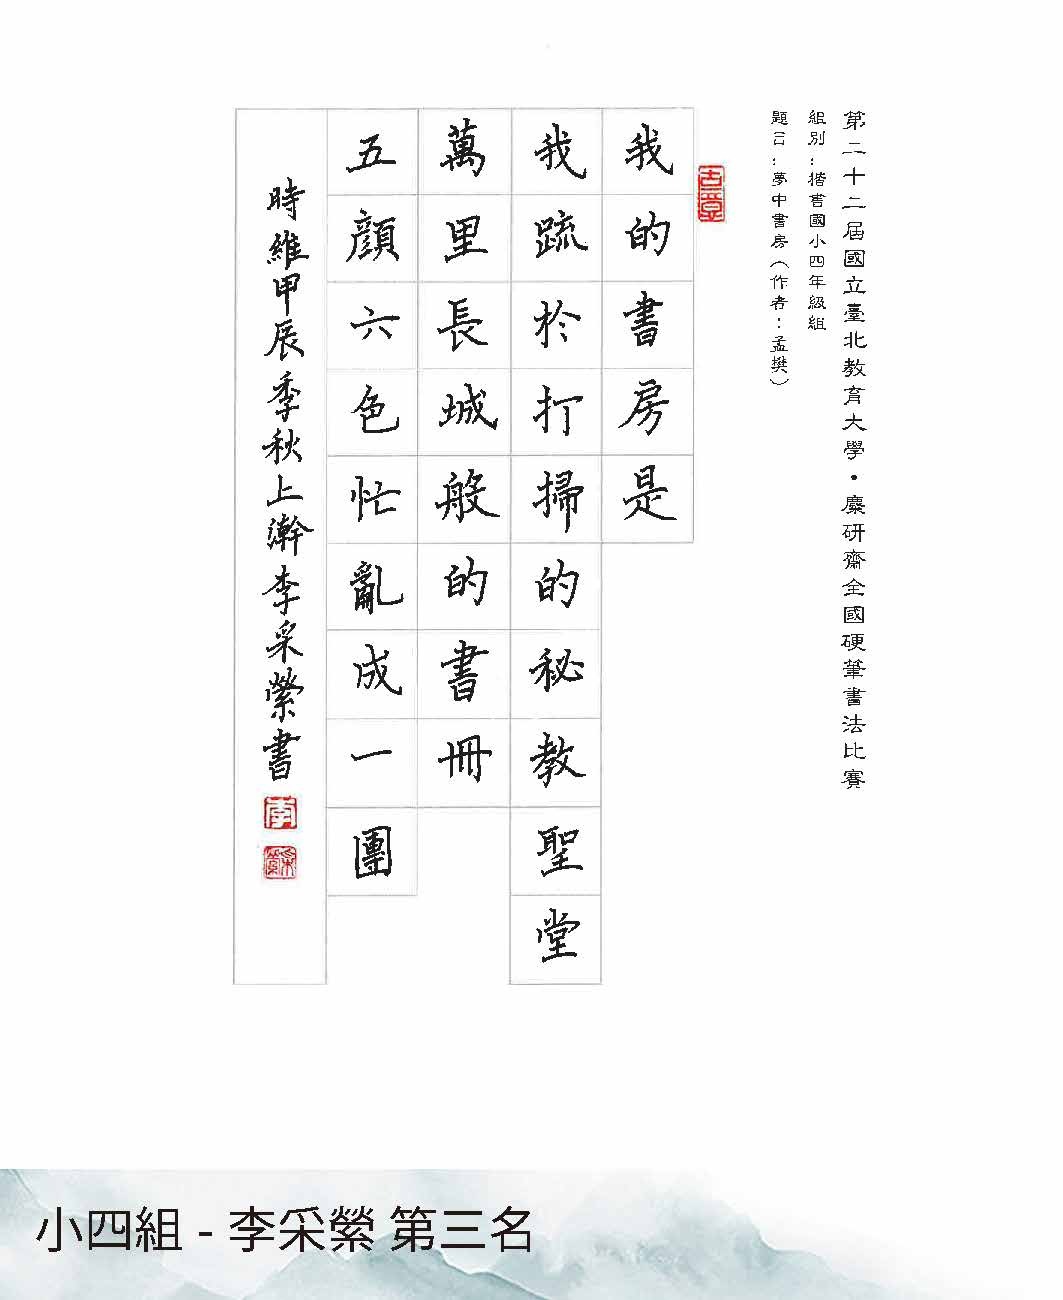 第二十二屆國立臺北教育大學・麋研齋全國硬筆書法比賽
組別：楷書國小四年級組
題目：夢中書房（作者：孟樊）
我的書房是
我疏於打掃的秘教聖堂
萬里長城般的書冊
五顏六色忙亂成一團
時維甲辰季秋上澣李采縈書
小四組 - 李采縈 第三名